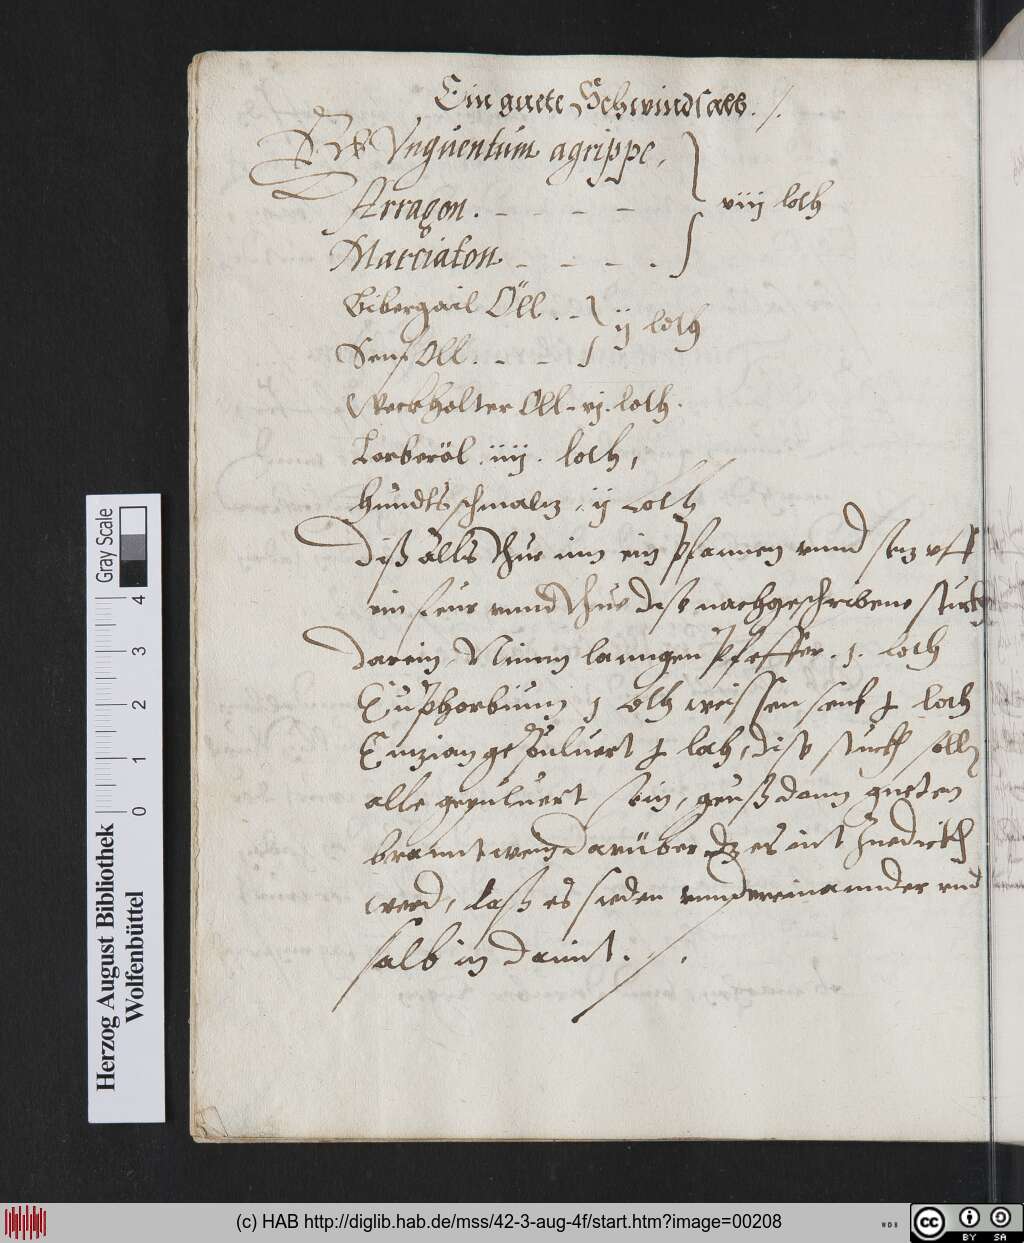 Ein guete Schwindsalb ./.
Rx Vnguentum agrippe,
Arragon . - - - -
viij loth
Marciaton - - - .
Bibergail Öll . -
ij loth
Senf Öll . - -
Weckholter Öll - vj. loth.
Lorberöl . iiij . loth,
hundtsschmaltz . ij Loth
diß alls thue inn ein Pfannen vnnd setz vff
ein feur vnnd thue dise nachgeschribene stuckh
darein, Nimm lanngen Pfeffer . j . Loth
Euphorbium j loth weissen senf loth
Enzian gepuluert loth, dise stuckh solln
alle gepuluert sein, geuß dann gueten
brannt wein darüber dz es nit zue dickh
werd, laß es sieden vnndereinannder vnd
salb in damit . /.
Gray Scale
0 1 2 3 4
Herzog August Bibliothek
Wolfenbüttel
(c) HAB http://diglib.hab.de/mss/42-3-aug-4f/start.htm?image=00208
WDB
cc BY SA